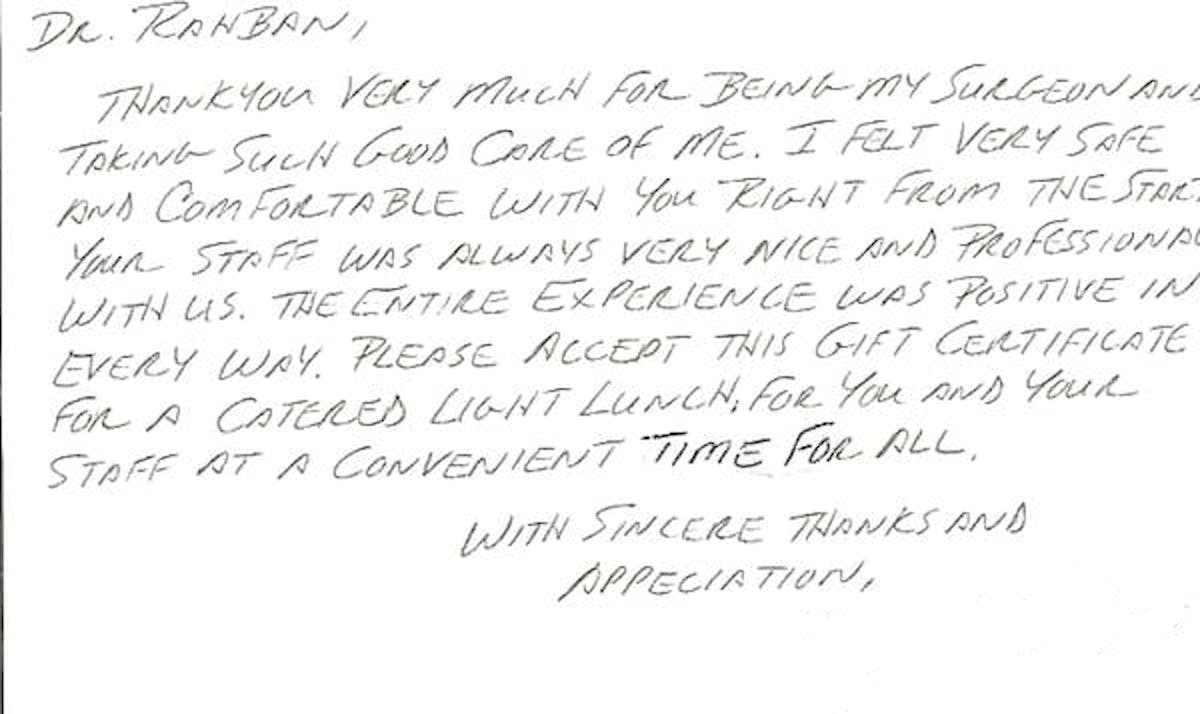 DR. RAHBAN,
THANKYOU VERY MUCH FOR BEING MY SURGEON AND
TAKING SUCH GOOD CARE OF ME. I FELT VERY SAFE
AND COMFORTABLE WITH YOU RIGHT FROM THE START
YOUR STAFF WAS ALWAYS VERY NICE AND PROFESSIONAL
WITH US. THE ENTIRE EXPERIENCE WAS POSITIVE IN
EVERY WAY. PLEASE ACCEPT THIS GIFT CERTIFICATE
FOR A CATERED LIGHT LUNCH, FOR YOU AND YOUR
STAFF AT A CONVENIENT TIME FOR ALL.
WITH SINCERE THANKS AND
APPECIATION,